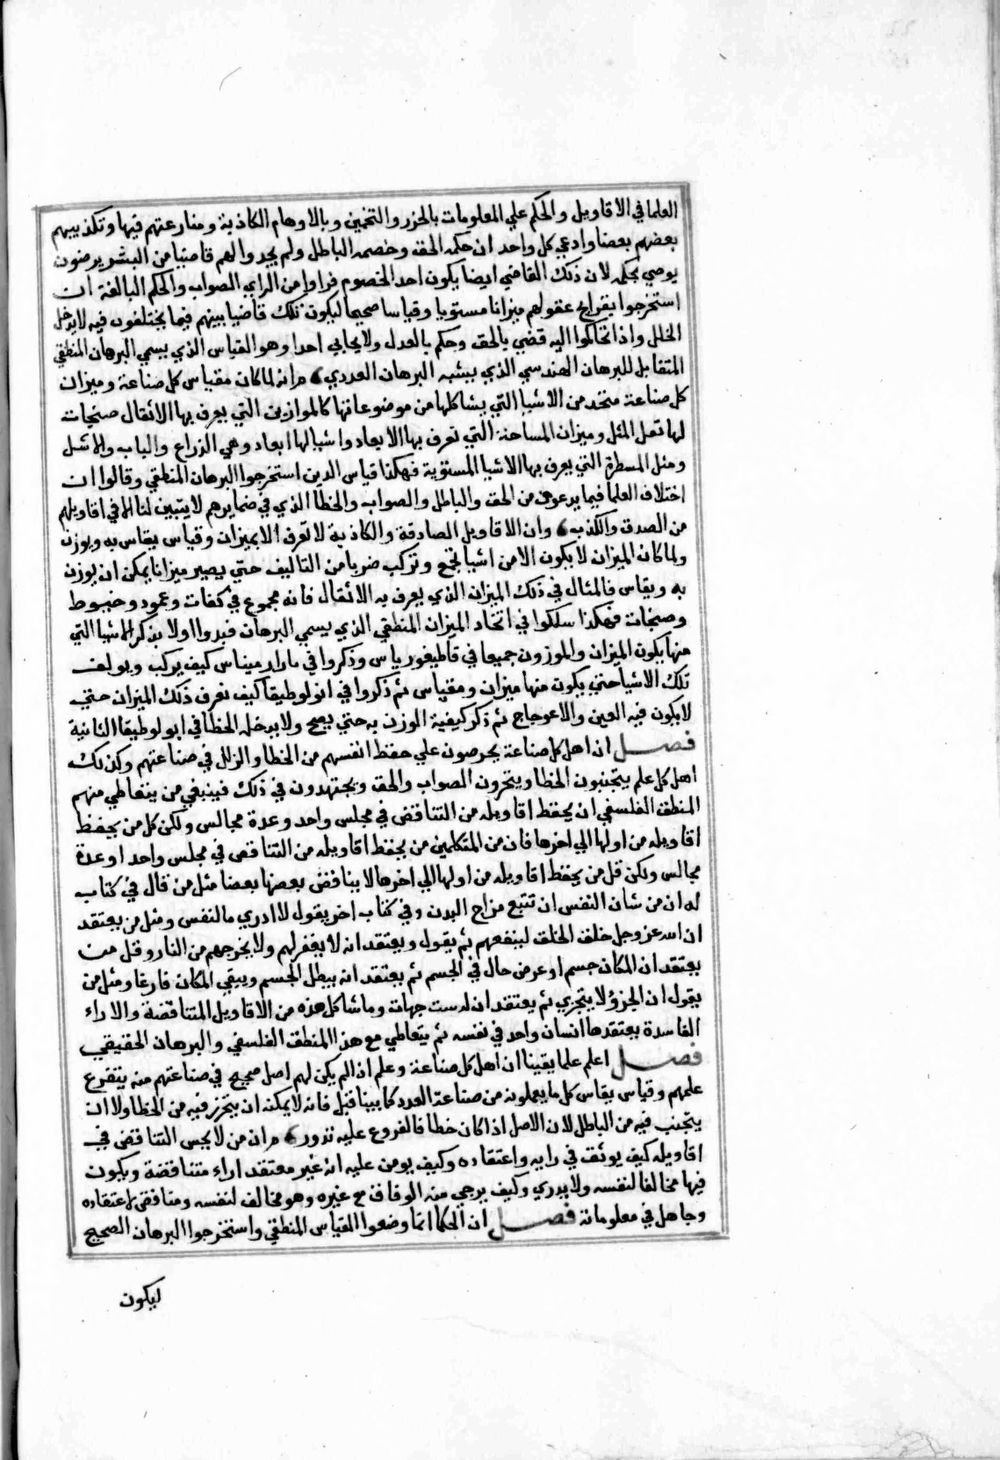 العلما في الاقاويل والحكم علي المعلومات بالحزر والتخمين وبالاوهام الكاذبة ومنازعتهم فيها وتكذيبهم
بعضهم بعضا وادعي كل واحد ان حكمه الحق وخصمه الباطل ولم يجدوا لهم قاضيا من البشر يرضون
بحكمه لان ذلك القاضي ايضا يكون احد الخصوم فراوا من الراي الصواب والحكم البالغة ان
استخرجوا بقرايح عقولهم ميزانا مستويا وقياسا صحيحا ليكون تلك قاضيا بينهم فيما يختلفون فيه لا يدخل
الخلل واذا تحاكموا اليه قضي بالحق وحكم بالعدل ولا يحابي احدا وهو القياس الذي يسمي البرهان المنطقي
المتقابل للبرهان الهندسي الذي يشبه البرهان العددي ولما كان مقياس كل صناعة وميزان
كل صناعة متخد من الاشيا التي يشاكلها من موضوعاتها كالموازين التي يعرف بها الاثقال صنجات
لها تعل المثل وميزان المساحة التي تعرف بها الابعاد واشيا لها ابعاد وهي الذراع والباب والاشل
ومثل المسطرة التي يعرف بها الاشيا المستوية فهكذا قياس الدين استخرجوا البرهان المنطقي وقالوا ان
اختلاف العلما فيما يدعون من الحق والباطل والصواب والخطا الذي في ضمايرهم لا يتبين لنا الا في اقاويلهم
من الصدق والكذب وان الاقاويل الصادقة والكاذبة لا تعرف الا بميزان وقياس يقاس به ويوزن
ولما كان الميزان لا يكون الا من اشيا تجمع وتركب ضربا من التاليف حتي يصير ميزانا يمكن ان يوزن
به ويقاس فالمثال في ذلك الميزان الذي يعرف به الاثقال فانه مجموع في كفات وعمود وخيوط
وصنجات فهكذا سلكوا في اتخاد الميزان المنطقي الذي يسمي البرهان فبدوا اولا بذكر الاشيا التي
منها يكون الميزان والموزون جميعا في قاطيغورياس وذكروا في بارارميناس كيف يركب ويولف
تلك الاشيا حتي يكون منها ميزان ومقياس ثم ذكروا في انولوطيقا كيف نعرف ذلك الميزان حتي
لا يكون فيه الغبن والاعوجاج ثم ذكر كيفية الوزن به حتي يصح ولا يدخله الخطا في ابولوطيقا الثانية
فصل ان اهل كل صناعة يحرصون علي حفظ انفسهم من الخطا والزلل في صناعتهم وكذلك
اهل كل علم يتجنبون الخطا ويتحرون الصواب والحق ويجتهدون في ذلك فينبغي من يتعاطي منهم
المنطق الفلسفي ان يحفظ اقاويله من التناقض في مجلس واحد وعدة مجالس ولكن كل من يحفظ
اقاويله من اولها الي اخرها فان من المتكلمين من يحفظ اقاويله من التناقض في مجلس واحد او عدة
مجالس ولكن قل من يحفظ اقاويله من اولها الي اخرها لا يناقض بعضها بعضا مثل من قال في كتاب
له ان من شان النفس ان تتبع مزاج البدن وفي كتاب اخر يقول لا ادري ما النفس ومثل من يعتقد
ان الله عز وجل خلق الخلق لينفعهم ثم يقول ويعتقد انه لا يغفر لهم ولا يخرجهم من النار وقل من
يعتقد ان المكان جسم او عرض حال في الجسم ثم يعتقد انه يبطل الجسم ويبقي المكان فارغا ومثل من
يقول ان الجزؤ لا يتجزي ثم يعتقد ان له ست جهات وما شاكل هذه من الاقاويل المتناقضة والاراء
الفاسدة يعتقدها انسان واحد في نفسه ثم يتعاطي مع هذا المنطق الفلسفي والبرهان الحقيقي
فصل اعلم علما يقينا ان اهل كل صناعة وعلم اذا لم يكن لهم اصل صحيح في صناعتهم منه يتفرع
علمهم وقياس يقاس كل ما يعملونه من صناعة العدد كما بينا قبل فانه لا يمكنه ان يتحرز فيه من الخطا ولا ان
يتجنب فيه من الباطل لان الاصل اذا كان خطا فالفروع عليه تدور وان من لا يحس التناقض في
اقاويله كيف يوثق في رايه واعتقاده وكيف يومن عليه انه غير معتقد اراء متناقضة ويكون
فيها مخالفا لنفسه ولا يدري وكيف يرجي منه الوفاق مع غيره وهو مخالف لنفسه ومناقض لاعتقاده
وجاهل في معلوماته فصل ان الحكما انما وضعوا القياس المنطقي واستخرجوا البرهان الصحيح
ليكون